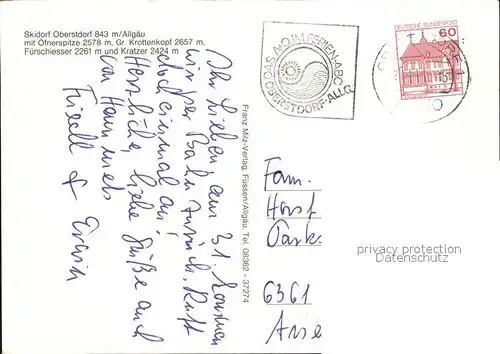 Skidorf Oberstdorf 843 m/Allgäu
mit Öfnerspitze 2578 m, Gr. Krottenkopf 2657 m,
Fürschiesser 2261 m und Kratzer 2424 m
Ihr Lieben, am 31. kommen
wir per Bahn zurück. Ruft
doch einmal an!
Herzliche, liebe Grüße auch
von
Friedl & Erwin
Franz Milz-Verlag, Füssen/Allgäu, Tel. 08362 - 37274
DAS A+O IM FERIEN-ABC
OBERSTDORF·ALLG.
DEUTSCHE BUNDESPOST
60
Fam.
Horst
6361
privacy protection
Datenschutz